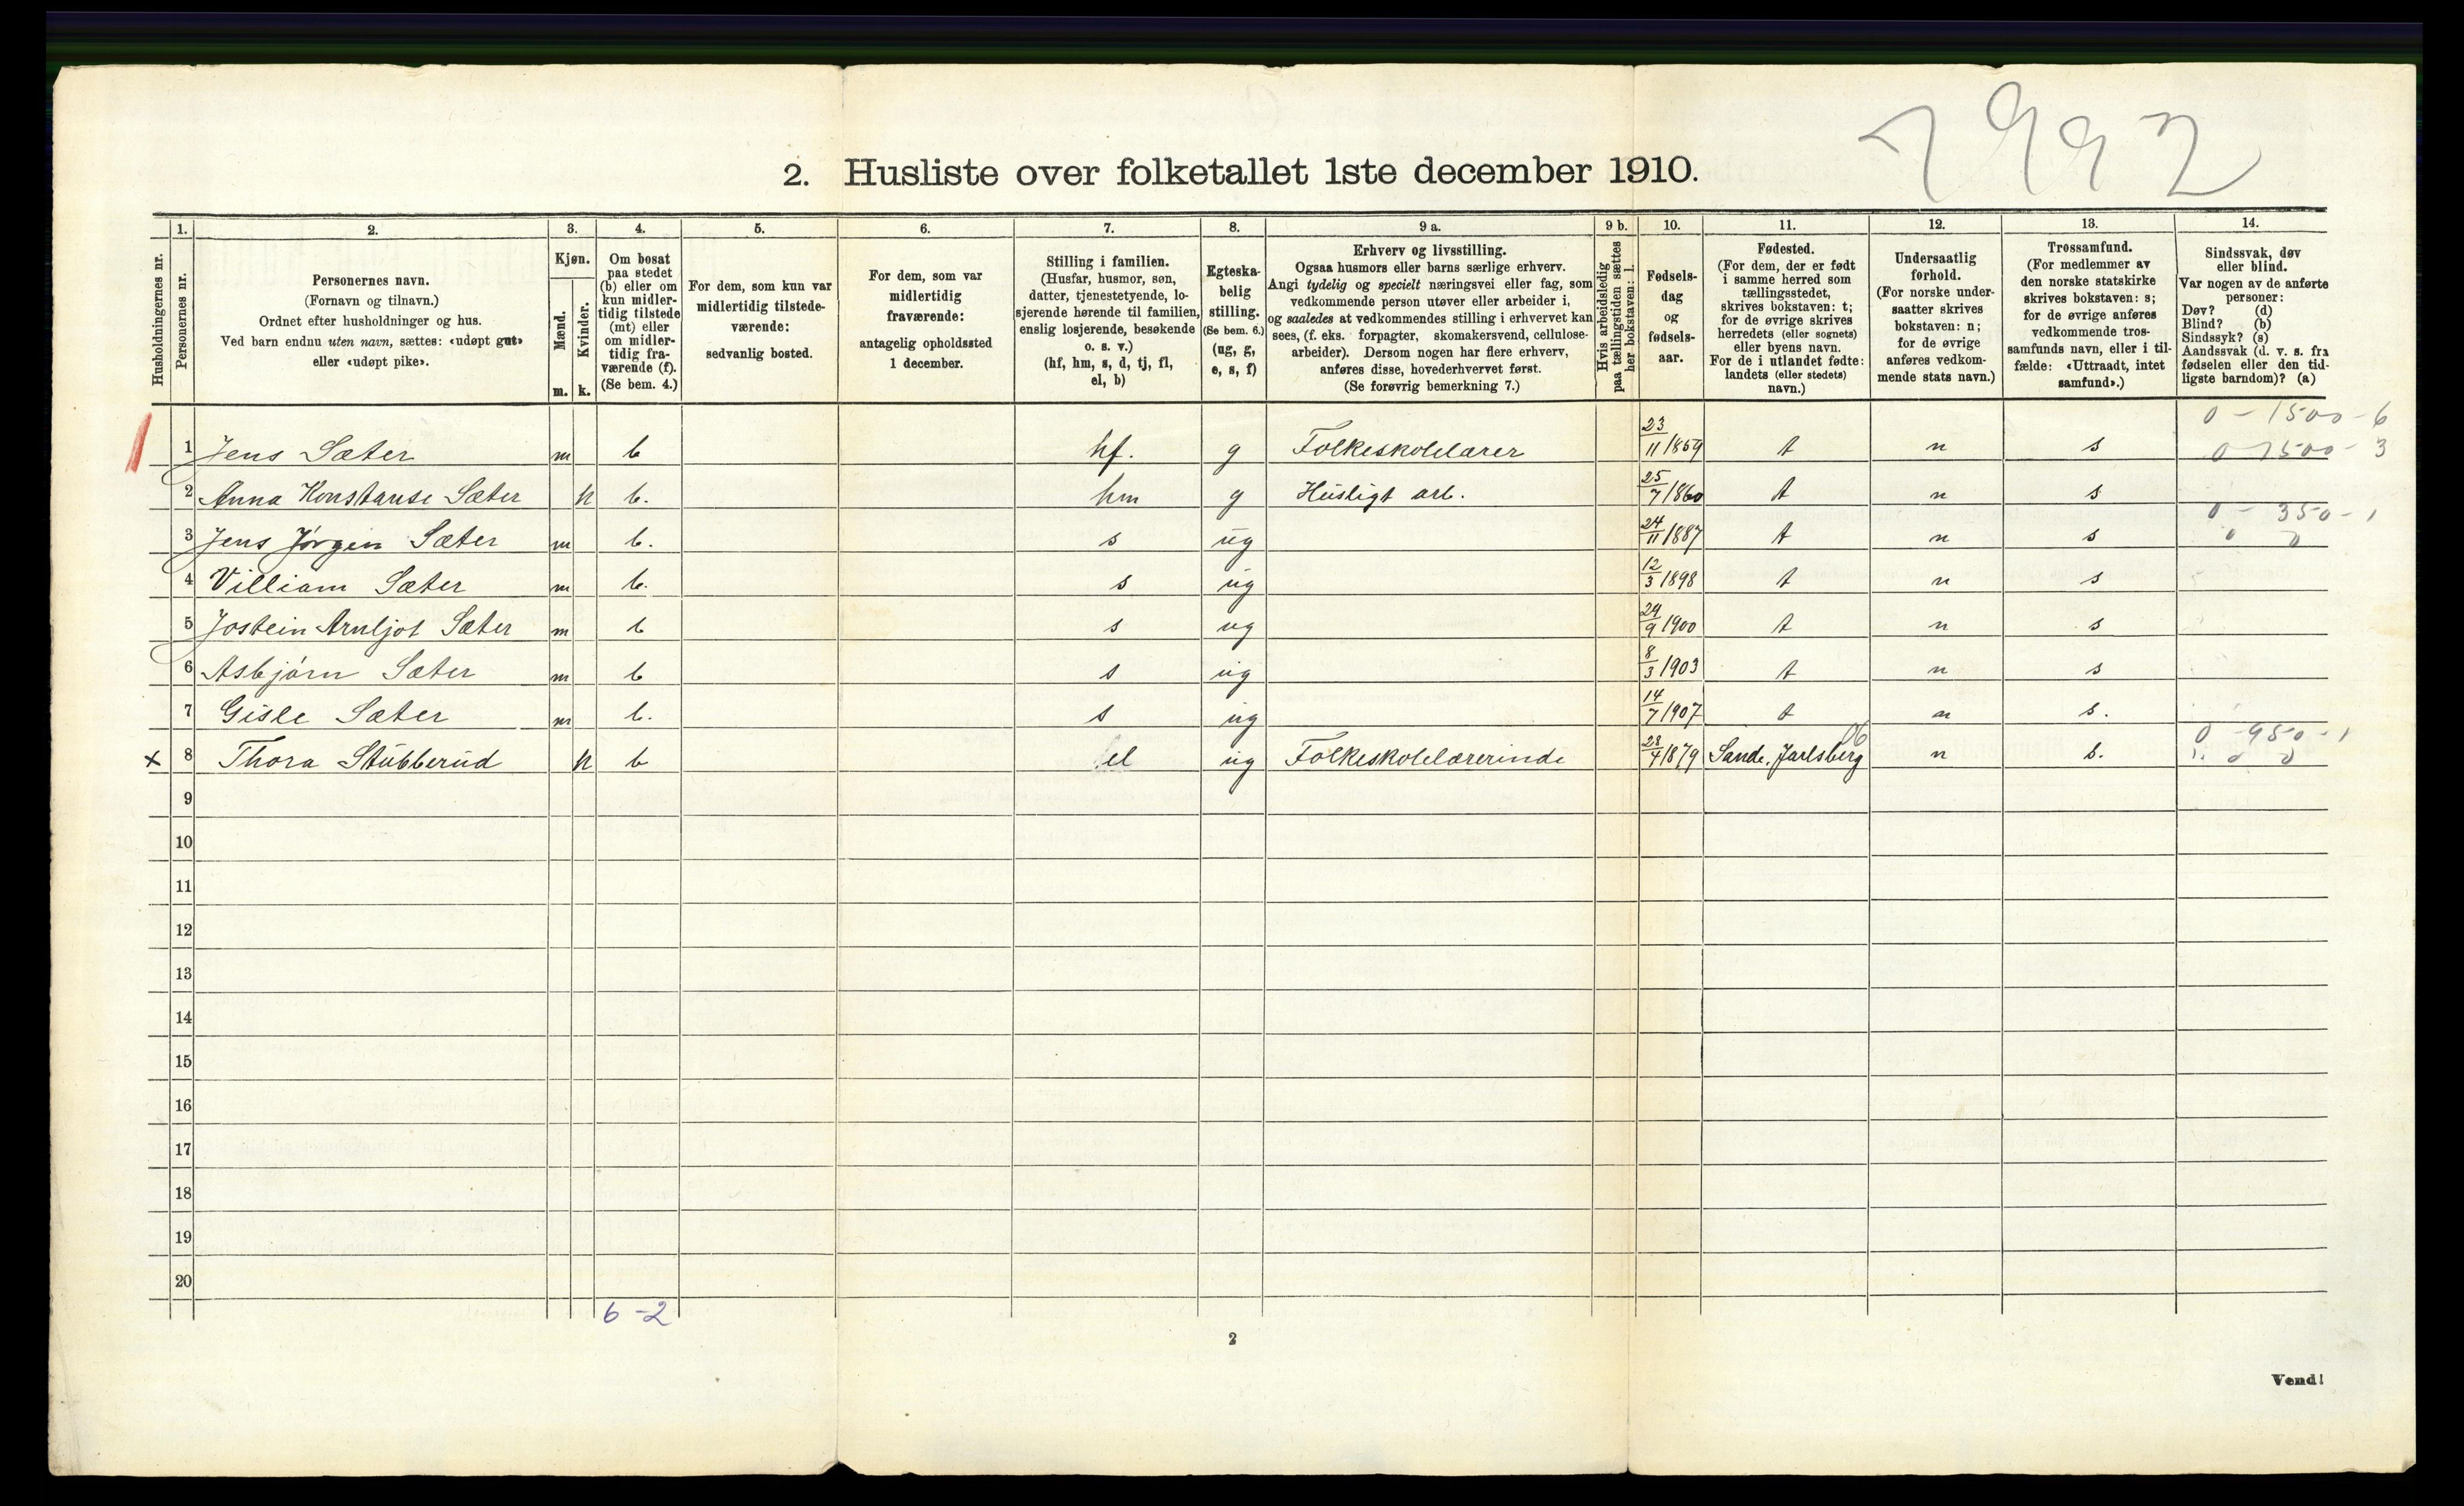 7992
2. Husliste over folketallet 1ste december 1910.
1. 2. 3. 4. 5. 6. 7. 8. 9 a. 9 b. 10. 11. 12. 13. 14.
Husholdningernes nr.
Personernes nr.
Personernes navn.
(Fornavn og tilnavn.)
Ordnet efter husholdninger og hus.
Ved barn endnu uten navn, sættes: «udøpt gut»
eller «udøpt pike».
Kjøn.
Mænd.
Kvinder.
m. k.
Om bosat
paa stedet
(b) eller om
kun midler-
tidig tilstede
(mt) eller
om midler-
tidig fra-
værende (f).
(Se bem. 4.)
For dem, som kun var
midlertidig tilstede-
værende:
sedvanlig bosted.
For dem, som var
midlertidig
fraværende:
antagelig opholdssted
1 december.
Stilling i familien.
(Husfar, husmor, søn,
datter, tjenestetyende, lo-
sjerende hørende til familien,
enslig losjerende, besøkende
o. s. v.)
(hf, hm, s, d, tj, fl,
el, b)
Egteska-
belig
stilling.
(Se bem. 6.)
(ug, g,
e, s, f)
Erhverv og livsstilling.
Ogsaa husmors eller barns særlige erhverv.
Angi tydelig og specielt næringsvei eller fag, som
vedkommende person utøver eller arbeider i,
og saaledes at vedkommendes stilling i erhvervet kan
sees, (f. eks. forpagter, skomakersvend, cellulose-
arbeider). Dersom nogen har flere erhverv,
anføres disse, hovederhvervet først.
(Se forøvrig bemerkning 7.)
Hvis arbeidsledig
paa tællingstiden sættes
her bokstaven: l.
Fødsels-
dag
og
fødsels-
aar.
Fødested.
(For dem, der er født
i samme herred som
tællingsstedet,
skrives bokstaven: t;
for de øvrige skrives
herredets (eller sognets)
eller byens navn.
For de i utlandet fødte:
landets (eller stedets)
navn.)
Undersaatlig
forhold.
(For norske under-
saatter skrives
bokstaven: n;
for de øvrige
anføres vedkom-
mende stats navn.)
Trossamfund.
(For medlemmer av
den norske statskirke
skrives bokstaven: s;
for de øvrige anføres
vedkommende tros-
samfunds navn, eller i til-
fælde: «Uttraadt, intet
samfund».)
Sindssvak, døv
eller blind.
Var nogen av de anførte
personer:
Døv? (d)
Blind? (b)
Sindssyk? (s)
Aandssvak (d. v. s. fra
fødselen eller den tid-
ligste barndom)? (a)
0 - 1500 - 6
1 Jens Sæter m b hf. g Folkeskolelærer 23/11 1859 t n s 0 1500 - 3
2 Anna Konstanse Sæter k b. hm g Husligt arb. 25/7 1860 t n s
0 - 350 - 1
3 Jens Jörgen Sæter m b. s ug 24/11 1887 t n s 0 0
4 Villiam Sæter m b. s ug 12/3 1898 t n s
5 Jostein Arnljot Sæter m b s ug 29/9 1900 t n s
6 Asbjörn Sæter m b s ug 8/3 1903 t n s
7 Gisle Sæter m b. s ug 14/7 1907 t n s.
06 0 - 950 - 1
x 8 Thora Stubberud k b el ug Folkeskolelærerinde 23/4 1879 Sande, Jarlsberg n s. 0 0
9
10
11
12
13
14
15
16
17
18
19
20
6 - 2
2
Vend!